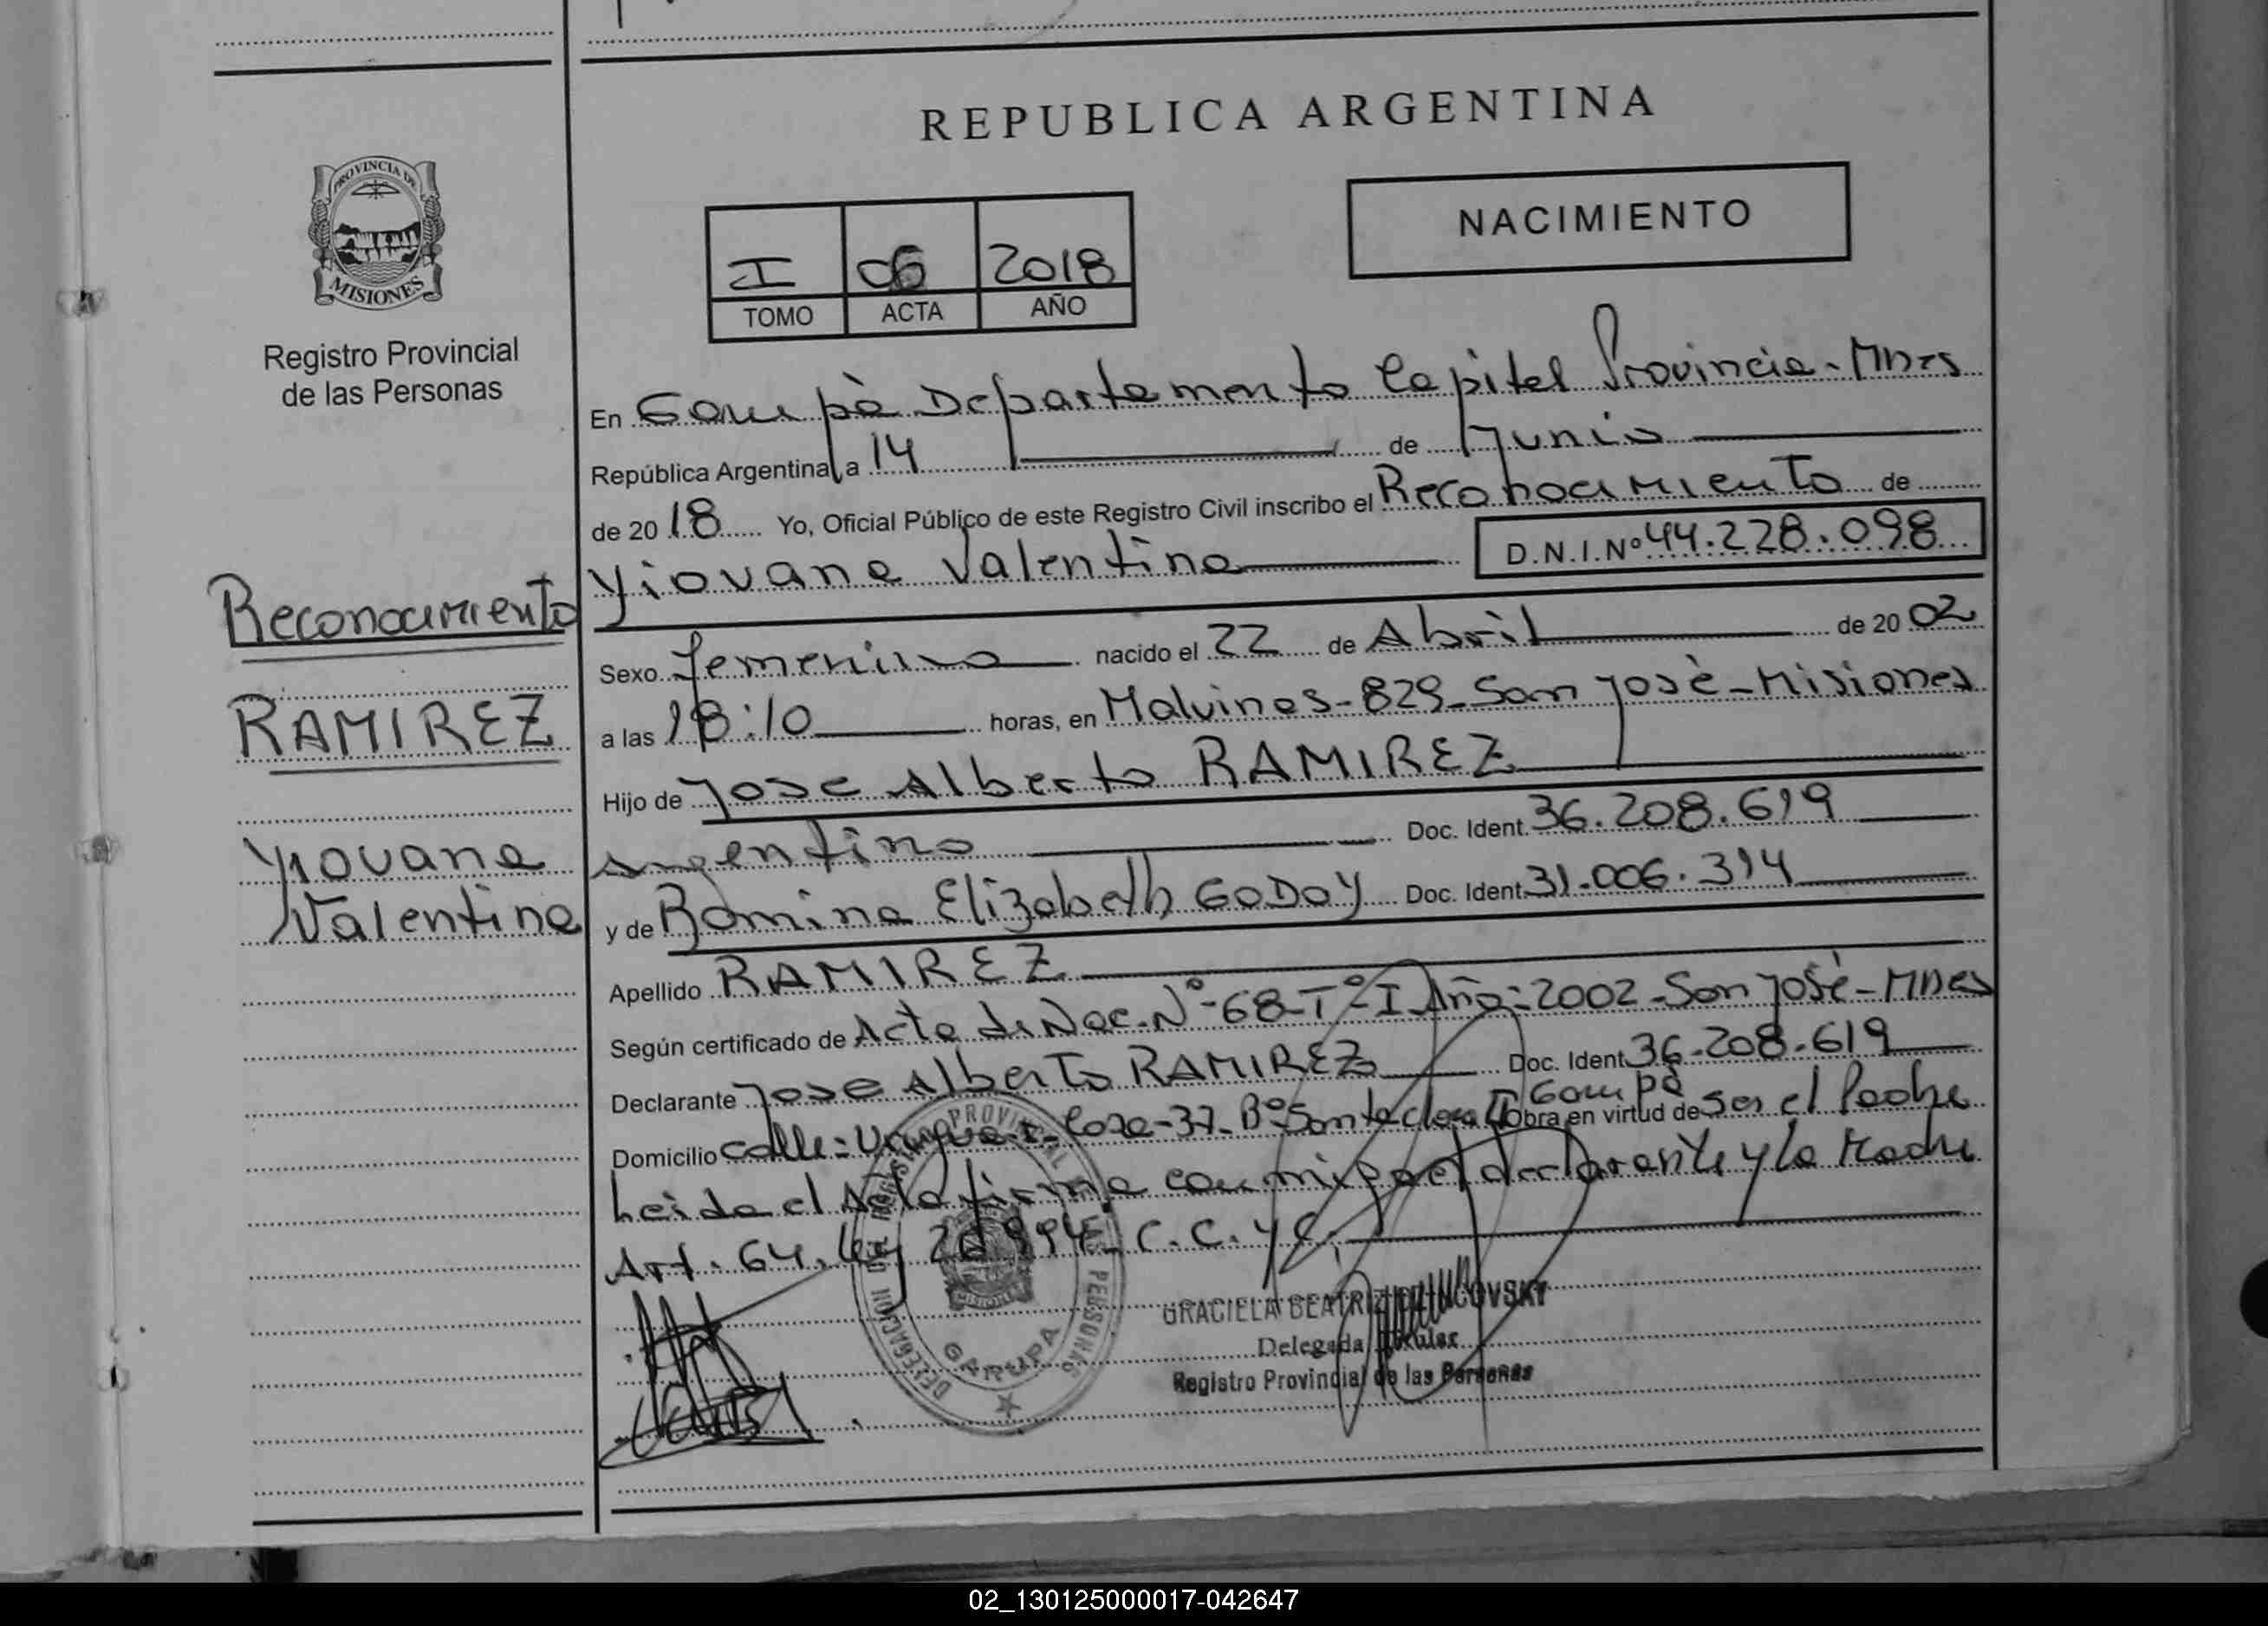 REPUBLICA ARGENTINA
PROVINCIA DE
MISIONES
Registro Provincial
de las Personas
NACIMIENTO
I 06 2018
TOMO ACTA AÑO
En Garupà Departamento Capital Provincia - Mnes
República Argentina, a 14 de Junio
de 2018 Yo, Oficial Público de este Registro Civil inscribo el Reconocimiento de
Yiovana Valentina D.N.I. Nº 44.228.098
Reconocimiento
RAMIREZ
Yiovana
Valentina
Sexo femenino nacido el 22 de Abril de 2002
a las 18:10 horas, en Malvinas - 829 - San Josè - Misiones
Hijo de Jose Alberto RAMIREZ
Argentino Doc. Ident. 36.208.619
y de Romina Elizabeth GODOY Doc. Ident. 31.006.314
Apellido RAMIREZ
Según certificado de Acta de Nac. Nº-68-Tº-I Año: 2002 - San José - Mnes
Declarante Jose Alberto RAMIREZ Doc. Ident. 36.208.619
Garupà
Domicilio Calle = Uruguai - Casa - 37 - Bº Santa Clara II Obra en virtud de ser el Padre
Leida el Acta firma con migo el declarante y la Madre
Art. 64. Ley 26994 C.C. y C.
DELEGACION DEL REGISTRO PROVINCIAL DE LAS PERSONAS
MISIONES
GARUPA
GRACIELA BEATRIZ
Delegada Titular
Registro Provincial de las Personas
02_130125000017-042647